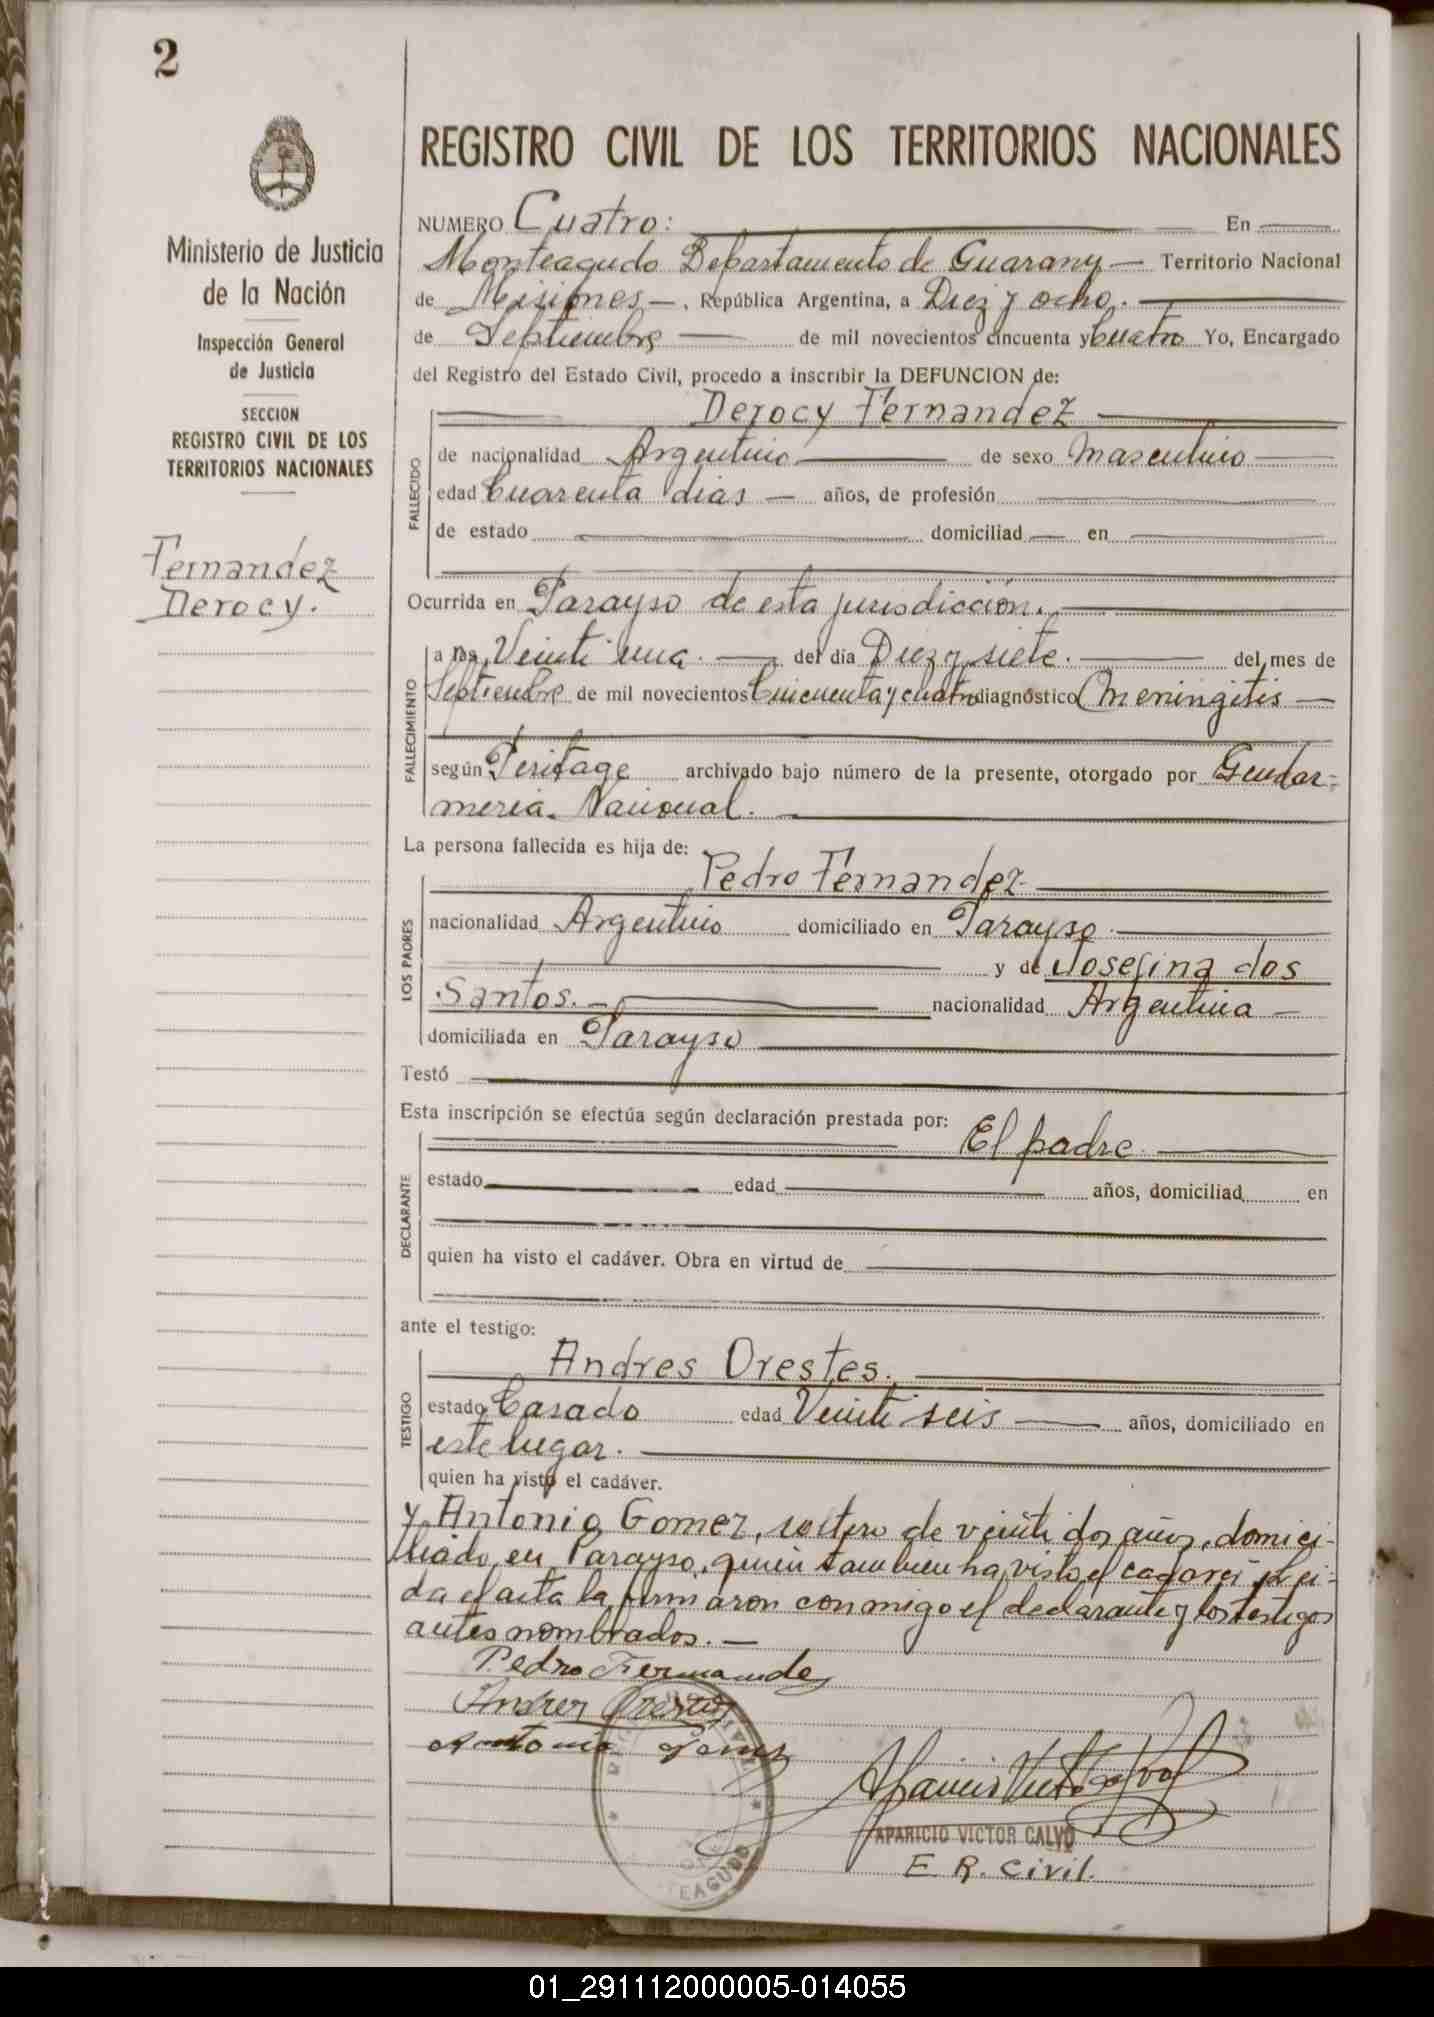 2
Ministerio de Justicia
de la Nación
Inspección General
de Justicia
SECCION
REGISTRO CIVIL DE LOS
TERRITORIOS NACIONALES
Fernandez
Derocy.
REGISTRO CIVIL DE LOS TERRITORIOS NACIONALES
NUMERO Cuatro: En
Monteagudo Departamento de Guarany — Territorio Nacional
de Misiones —, República Argentina, a Diez y ocho.
de Septiembre — de mil novecientos cincuenta y Cuatro Yo, Encargado
del Registro del Estado Civil, procedo a inscribir la DEFUNCION de:
Derocy Fernandez
FALLECIDO
de nacionalidad Argentino de sexo masculino
edad Cuarenta dias — años, de profesión
de estado domiciliad — en
Ocurrida en Parayso de esta jurisdicción.
FALLECIMIENTO
a las Veinti una. — del día Diez y siete. — del mes de
Septiembre de mil novecientos Cincuenta y cuatro diagnóstico Meningitis —
según Peritage archivado bajo número de la presente, otorgado por Gendar=
meria Nacional.
La persona fallecida es hija de:
Pedro Fernandez
LOS PADRES
nacionalidad Argentino domiciliado en Parayso.
y de Josefina dos
Santos. — nacionalidad Argentina —
domiciliada en Parayso
Testó
Esta inscripción se efectúa según declaración prestada por:
El padre.
DECLARANTE
estado edad años, domiciliad en
quien ha visto el cadáver. Obra en virtud de
ante el testigo:
Andres Orestes.
TESTIGO
estado Casado edad Veinti seis — años, domiciliado en
este lugar.
quien ha visto el cadáver.
y Antonio Gomez, soltero de veinti dos años, domici-
liado en Parayso, quien tambien ha visto el cadaver, lei-
da el acta la firmaron conmigo el declarante y los testigos
antes nombrados. —
Pedro Fernandez
Andres Orestes
Antonio Gomez
APARICIO VICTOR CALVO
E R. Civil.
01_291112000005-014055